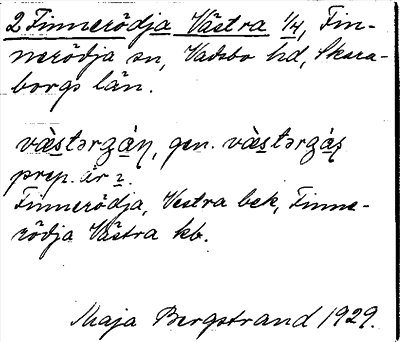 2 Finnerödja Västra 1/4, Fin-
nerödja sn, Vadsbo hd, Skara-
borgs län.
västərgaŋ, gen. västərgaş
prep. är 2.
Finnerödja, Vestra bek, Finne-
rödja Västra kb.
Maja Bergstrand 1929.